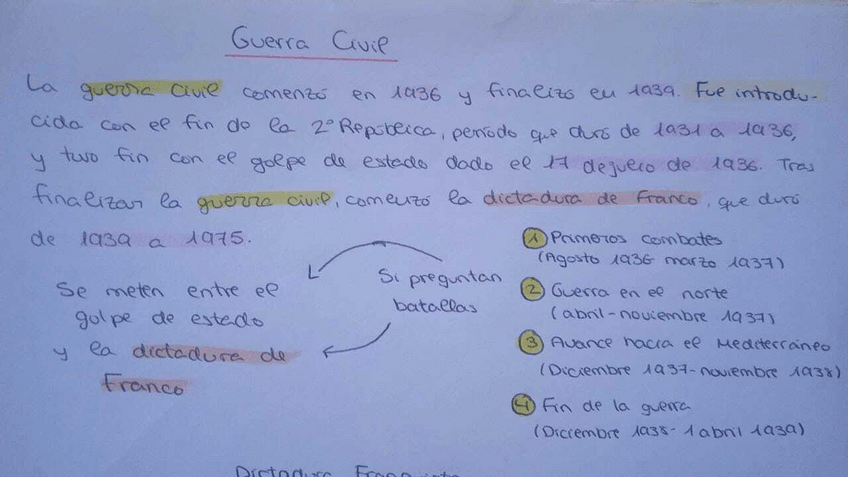 Guerra Civil
La guerra civil comenzó en 1936 y finalizó en 1939. Fue introdu-
cida con el fin de la 2º República, período que duró de 1931 a 1936,
y tuvo fin con el golpe de estado dado el 17 de julio de 1936. Tras
finalizar la guerra civil, comenzó la dictadura de Franco, que duró
de 1939 a 1975.
Se meten entre el
golpe de estado
y la dictadura de
Franco
Si preguntan
batallas
1 Primeros combates
(Agosto 1936 marzo 1937)
2 Guerra en el norte
(abril-noviembre 1937)
3 Avance hacia el Mediterráneo
(Diciembre 1937-noviembre 1938)
4 Fin de la guerra
(Diciembre 1938-1 abril 1939)
Dictadura Franquista